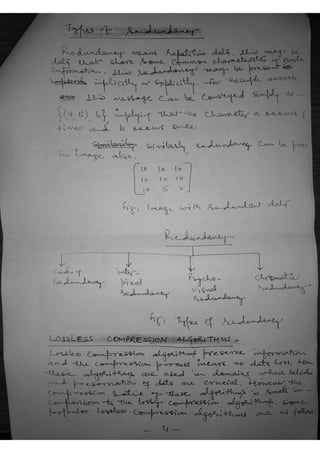 Types of Redundancy
Redundancy means repetitive data. This may be
data that share some common characteristics or
information. This redundancy may be present
implicitly or explicitly. For example
This message can be conveyed simply as -
{(a,5), b} implying that the character a occurs 5
times and b occurs once.
Similarly Similarly redundancy can be
in image also.
10 10 10
10 10 10
10 5
fig: Image with redundant data
Redundancy
Coding redundancy
Inter-pixel redundancy
Psycho-visual redundancy
Chromatic redundancy
fig: Types of redundancy
LOSSLESS COMPRESSION ALGORITHMS -
Lossless compression algorithms preserve information
and the compression process incurs no data loss. Hence
these algorithms are used in domains where
and preservation of data are crucial. However the
compression ratio of these algorithms is small in
comparison to the lossy compression algorithms. Some
popular lossless compression algorithms are as follow
- 4 -